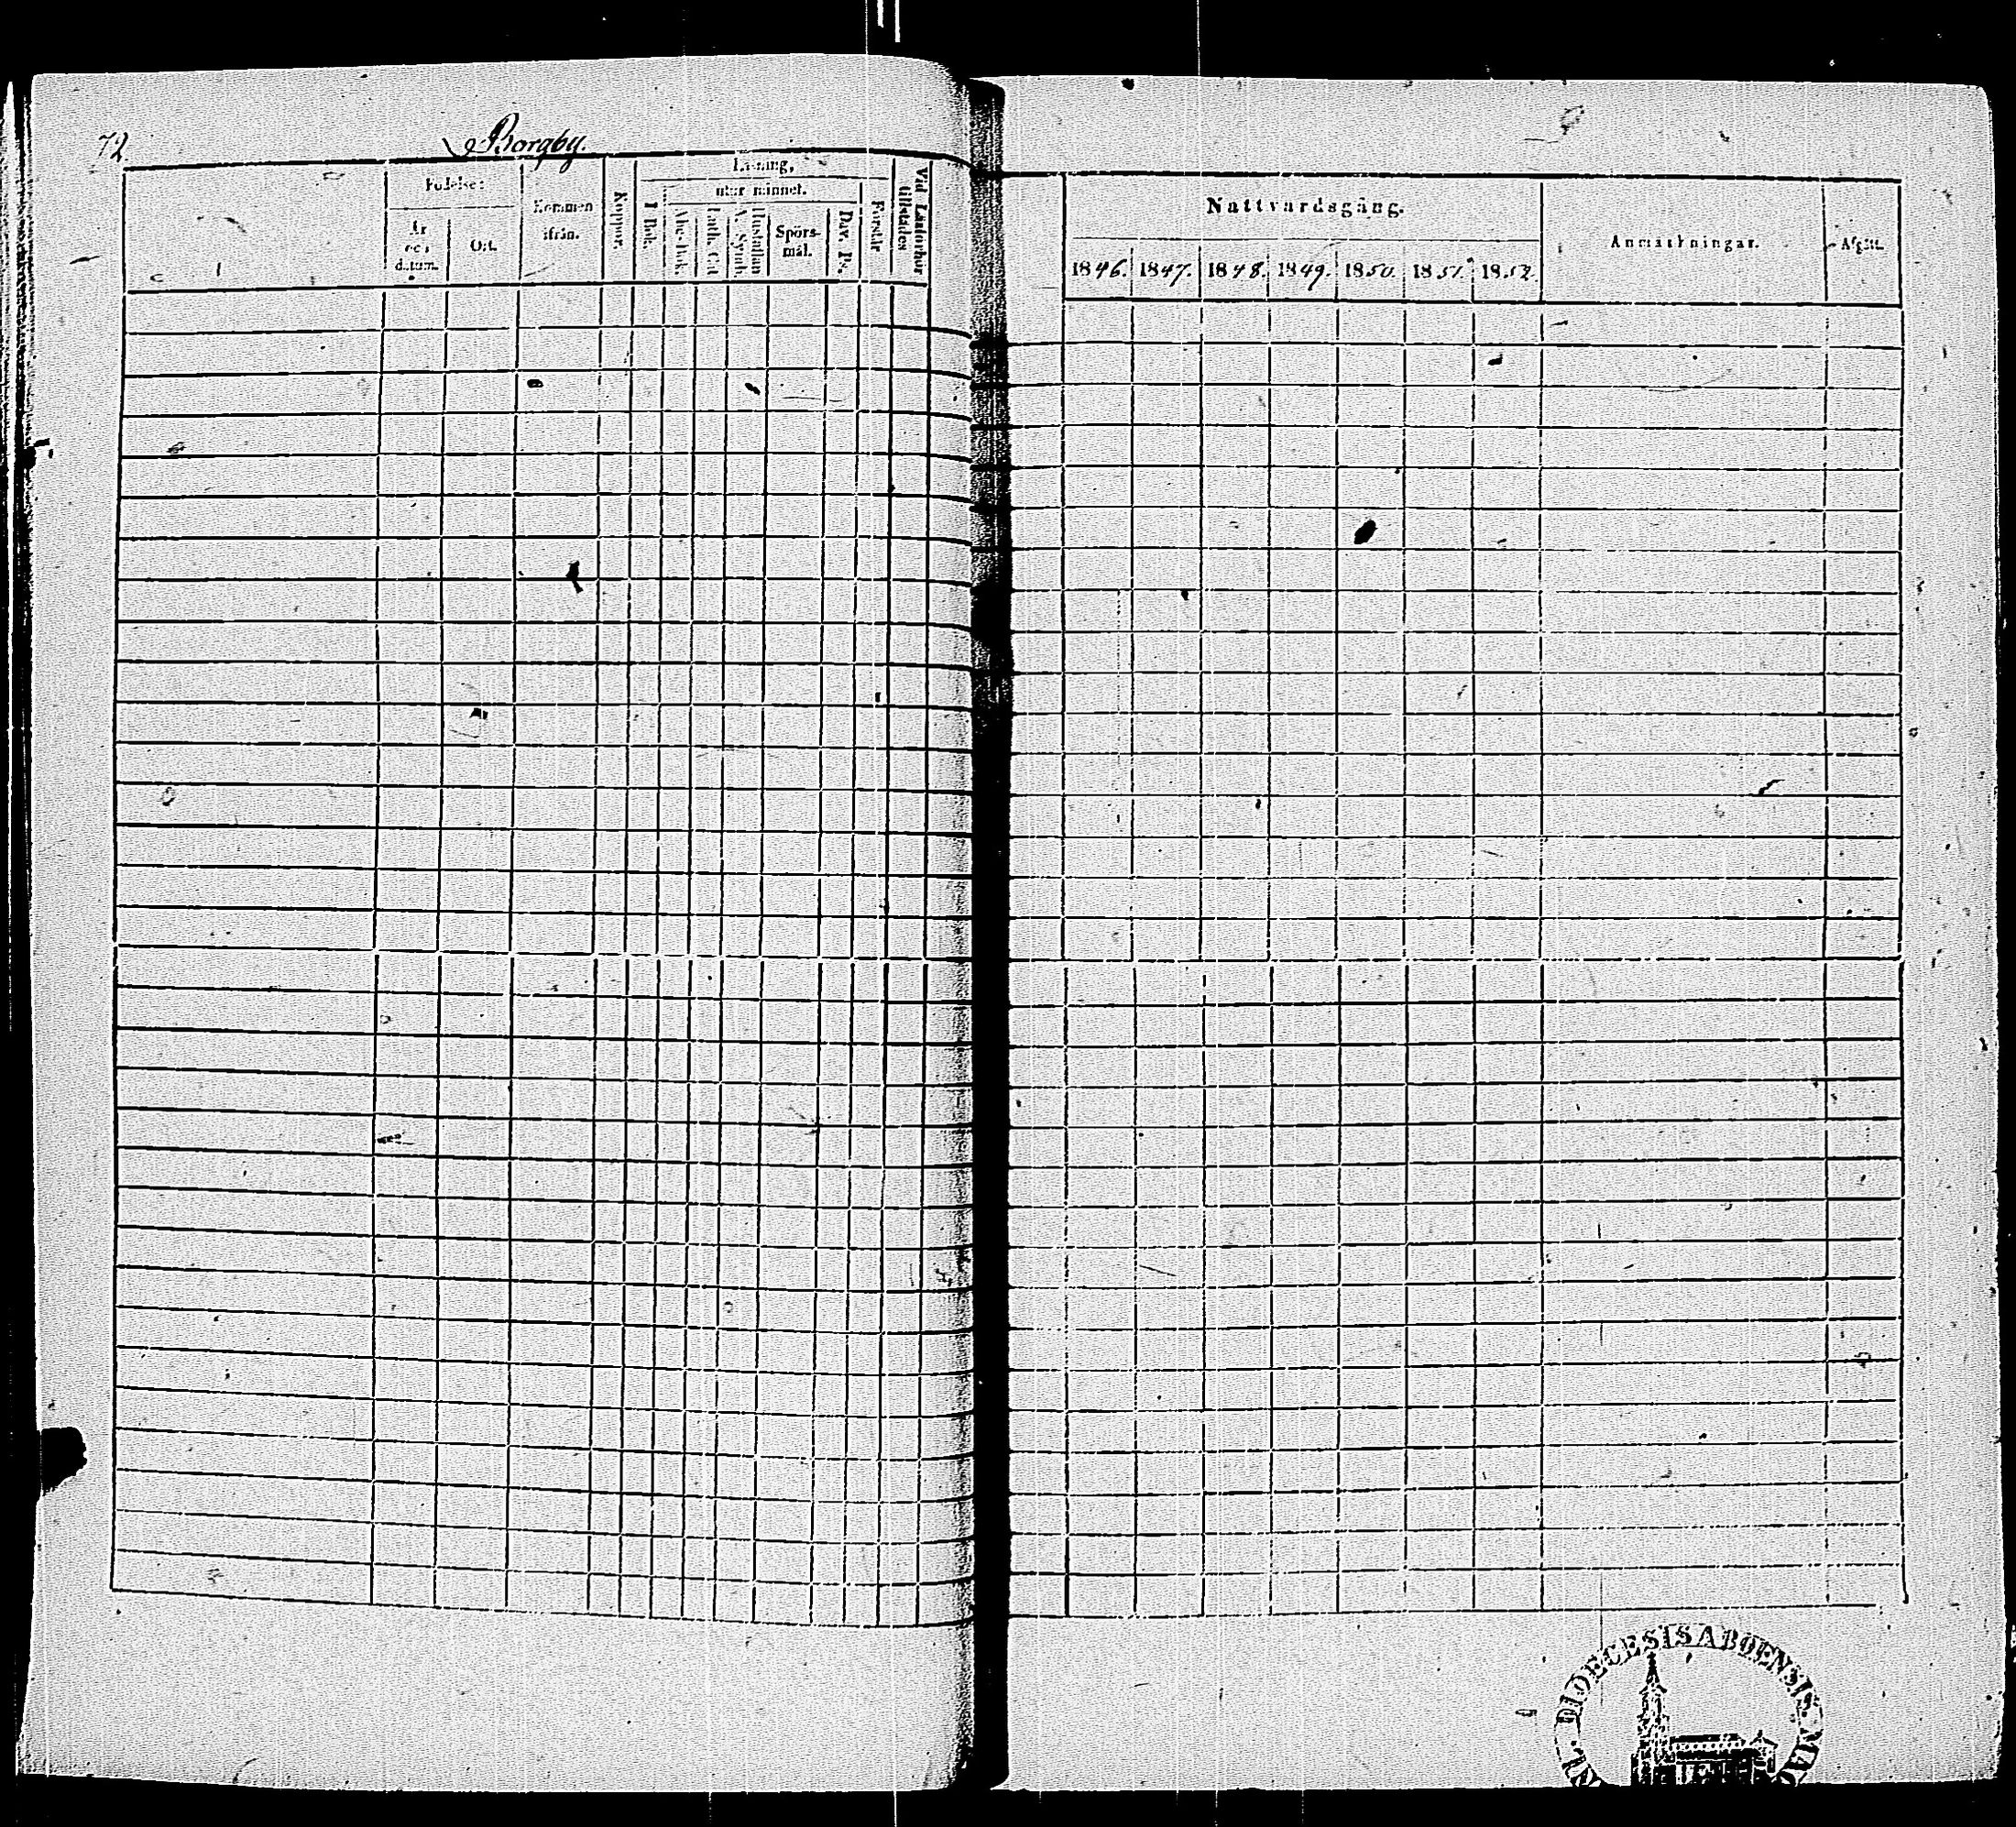 72.
Borgby.
Födelse:
År och datum.
Ort.
Kommen ifrån.
Koppor.
Läsning,
I Bok.
utur minnet.
Abc-bok.
Luth. Cat.
Hustaflan A. Symb.
Spörs-mål.
Dav. Ps.
Förstår
Vid Läsförhör tillstädes
Nattvardsgång.
1846. 1847. 1848. 1849. 1850. 1851. 1852.
Anmärkningar.
Afgått.
DIOECESIS ABOENSIS